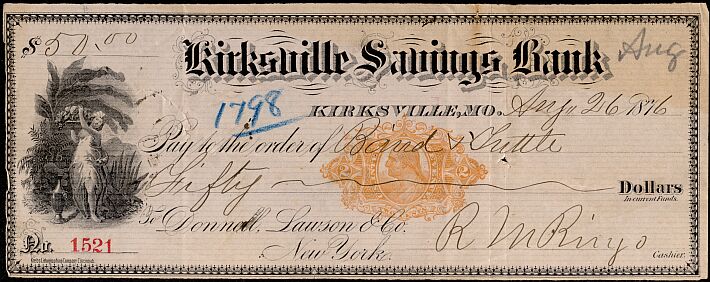 $50.00
Kirksville Savings Bank
Aug
1798
KIRKSVILLE, MO. Aug 26 1876
Pay to the order of Band & Tuttle
Fifty Dollars
In current Funds.
To Donnell, Lawson & Co.
New York.
R M Ringo
Cashier.
No. 1521